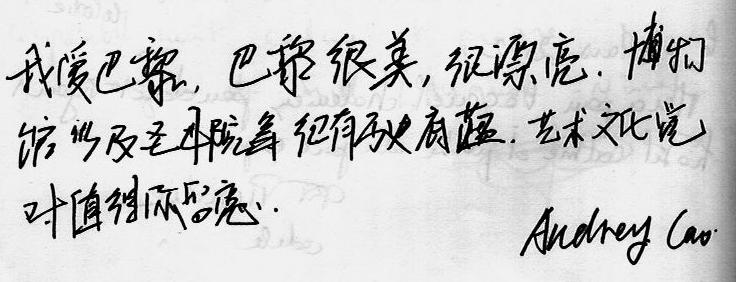 我爱巴黎,巴黎很美,很漂亮.博物
馆以及圣母院等很有历史底蕴.艺术文化绝
对值得你留恋.
Audrey Cao